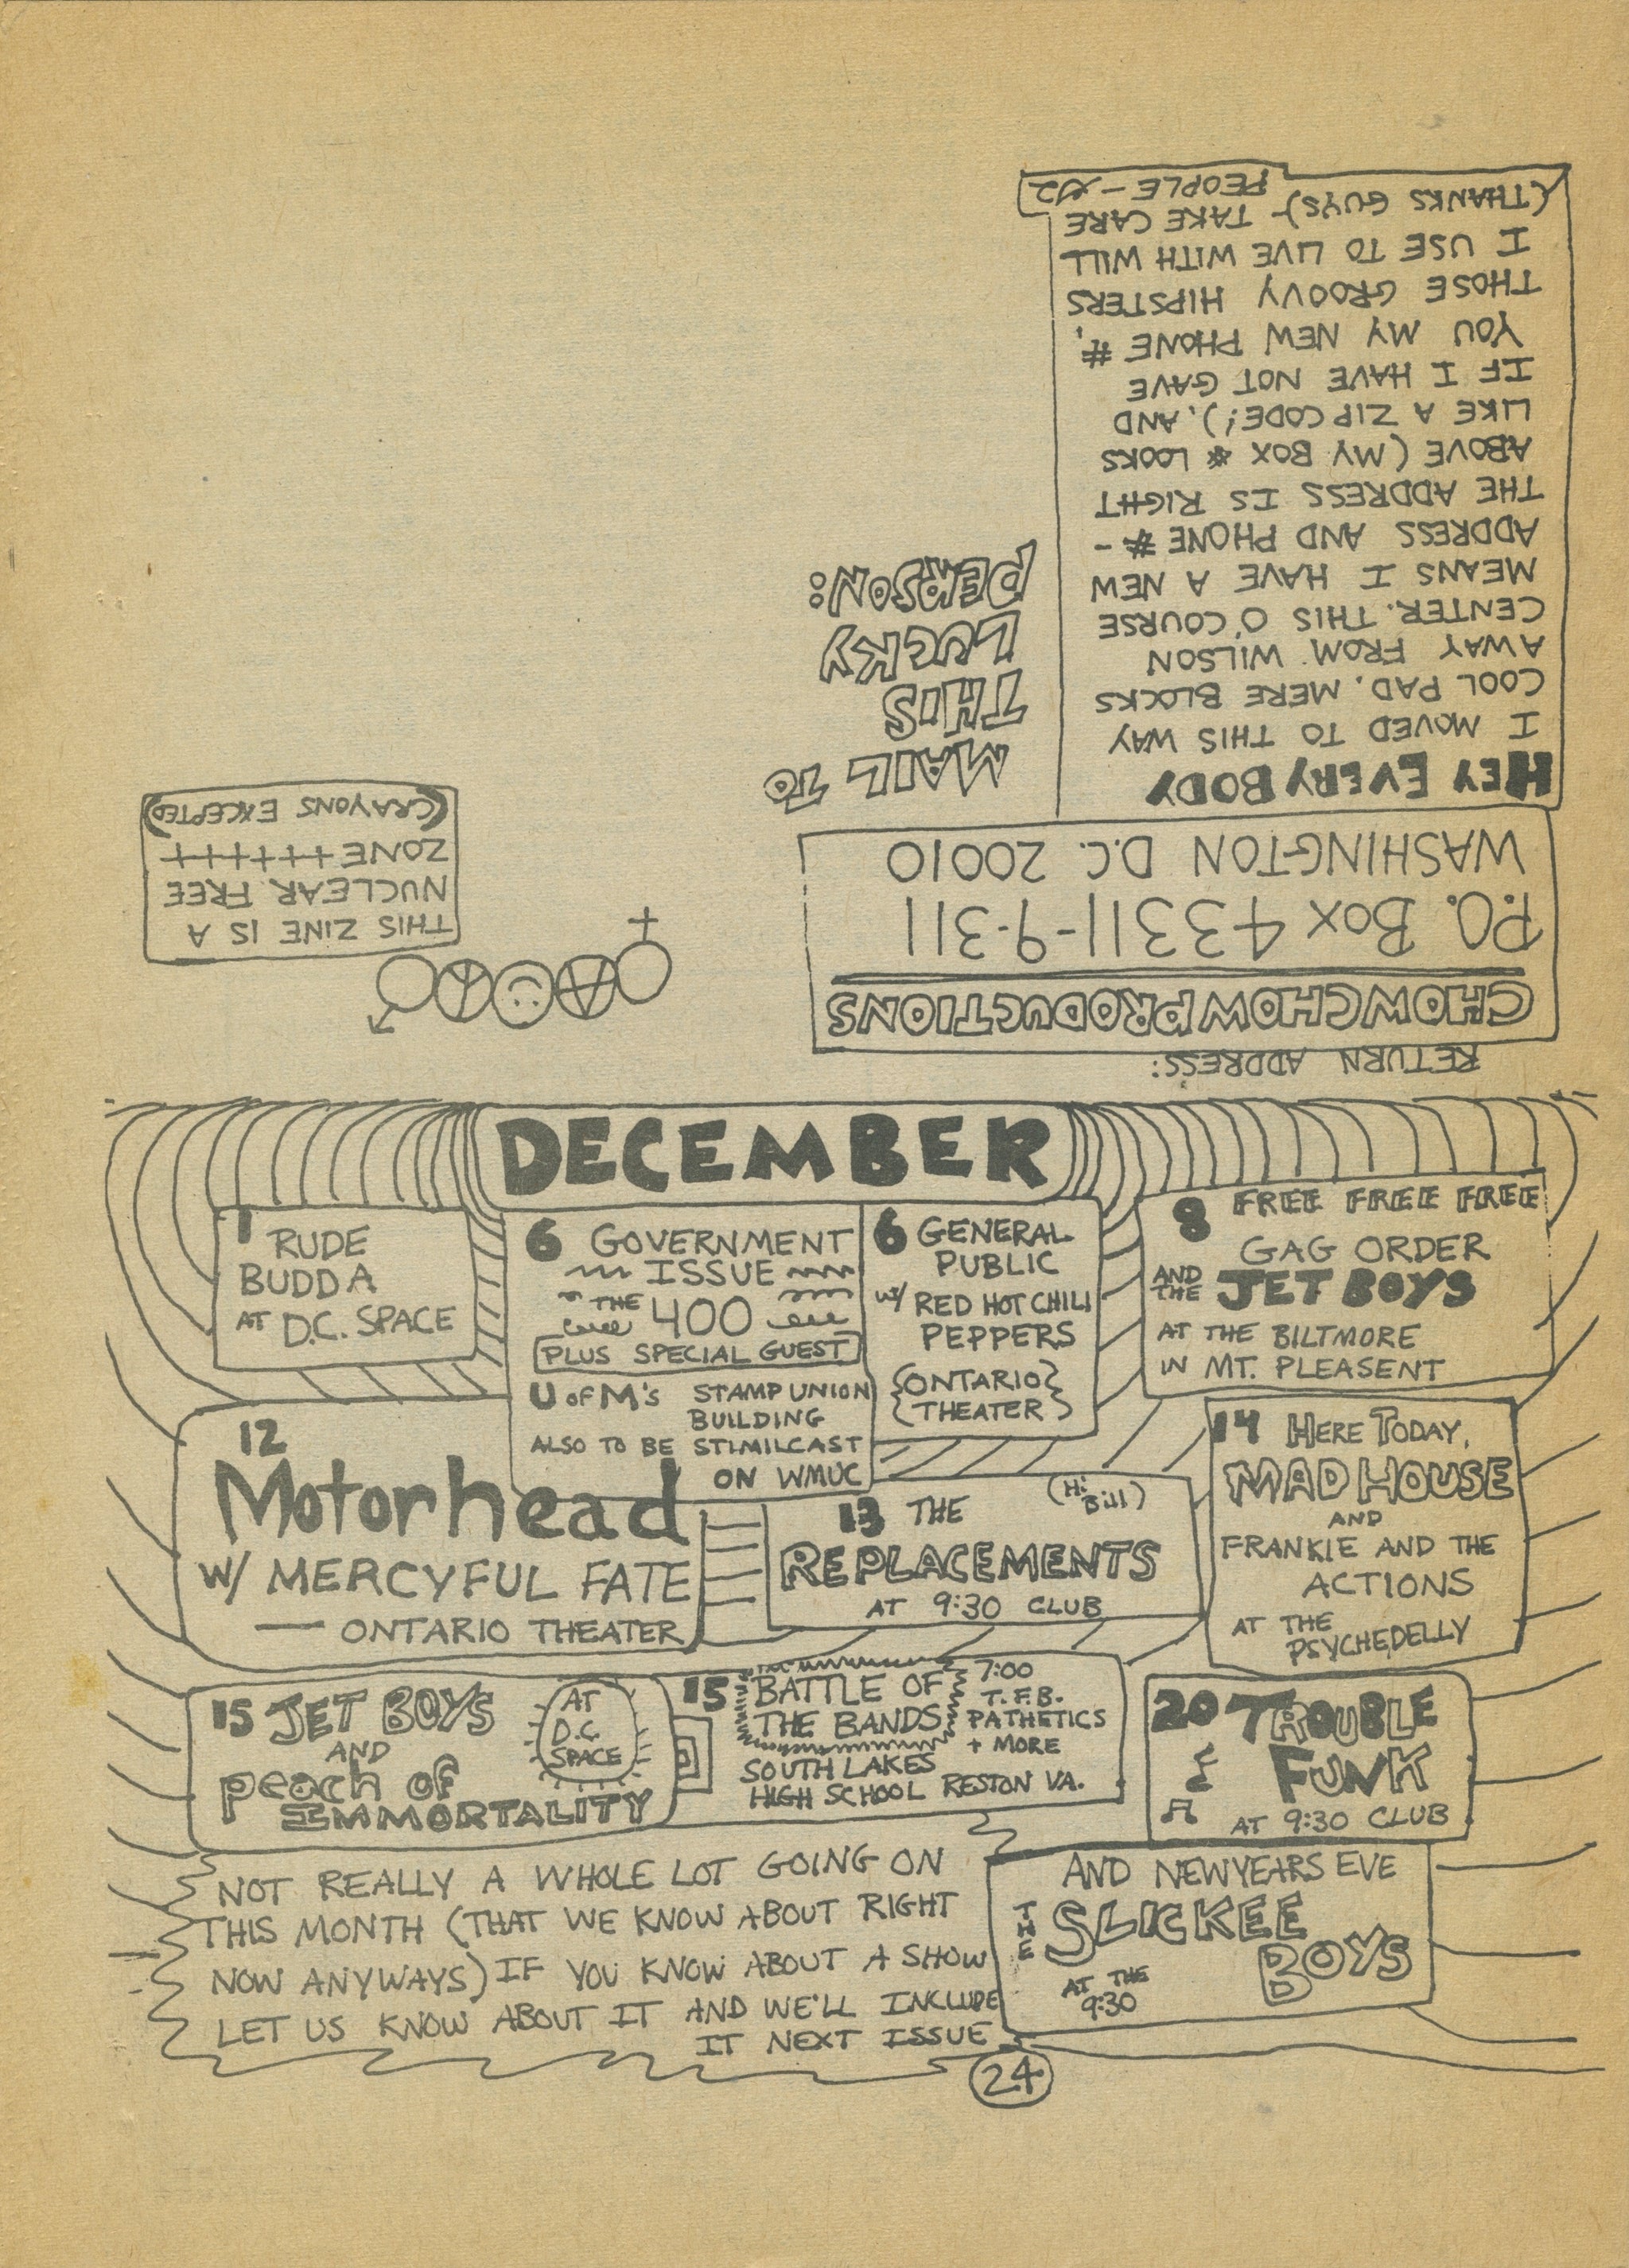 RETURN ADDRESS:
CHOW CHOW PRODUCTIONS
P.O. BOX 43311-9-311
WASHINGTON D.C. 20010
HEY EVERYBODY
I MOVED TO THIS WAY
COOL PAD, MERE BLOCKS
AWAY FROM WILSON
CENTER. THIS O'COURSE
MEANS I HAVE A NEW
ADDRESS AND PHONE # -
THE ADDRESS IS RIGHT
ABOVE (MY BOX # LOOKS
LIKE A ZIP CODE!), AND
IF I HAVE NOT GAVE
YOU MY NEW PHONE #,
THOSE GROOVY HIPSTERS
I USE TO LIVE WITH WILL
(THANKS GUYS) - TAKE CARE
PEOPLE -
MAIL TO
THIS
LUCKY
PERSON:
THIS ZINE IS A
NUCLEAR FREE
ZONE ++++++
(CRAYONS EXCEPTED)
DECEMBER
1 RUDE
BUDDA
AT D.C. SPACE
6 GOVERNMENT
ISSUE
THE 400
PLUS SPECIAL GUEST
U OF M'S STAMP UNION
BUILDING
ALSO TO BE STIMILCAST
ON WMUC
6 GENERAL
PUBLIC
W/ RED HOT CHILI
PEPPERS
ONTARIO
THEATER
8 FREE FREE FREE
GAG ORDER
AND THE JET BOYS
AT THE BILTMORE
IN MT. PLEASENT
12
Motorhead
W/ MERCYFUL FATE
— ONTARIO THEATER
13 THE (Hi Bill)
REPLACEMENTS
AT 9:30 CLUB
14 HERE TODAY,
MAD HOUSE
AND
FRANKIE AND THE
ACTIONS
AT THE
PSYCHEDELLY
15 JET BOYS
AND
peach of
IMMORTALITY
AT
D.C.
SPACE
15 BATTLE OF
THE BANDS
7:00
T.F.B.
PATHETICS
+ MORE
SOUTH LAKES
HIGH SCHOOL RESTON VA.
20 TROUBLE
FUNK
AT 9:30 CLUB
NOT REALLY A WHOLE LOT GOING ON
THIS MONTH (THAT WE KNOW ABOUT RIGHT
NOW ANYWAYS) IF YOU KNOW ABOUT A SHOW
LET US KNOW ABOUT IT AND WE'LL INCLUDE
IT NEXT ISSUE
AND NEW YEARS EVE
THE SLICKEE
BOYS
AT THE
9:30
24